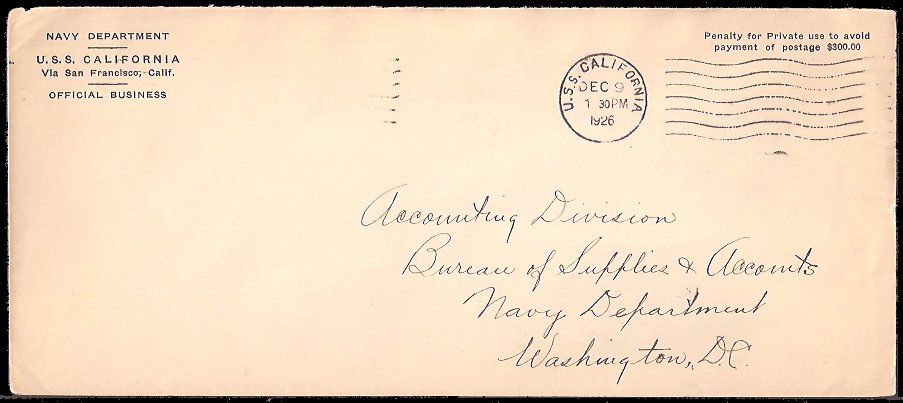 NAVY DEPARTMENT
U.S.S. CALIFORNIA
Via San Francisco, Calif.
OFFICIAL BUSINESS
U.S.S. CALIFORNIA
DEC 9
1 30PM
1926
Penalty for Private use to avoid
payment of postage $300.00
Accounting Division
Bureau of Supplies & Accounts
Navy Department
Washington, D.C.